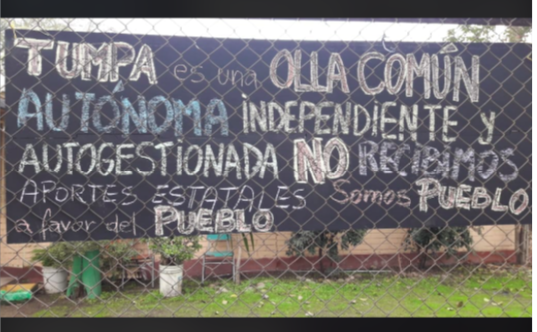 TUMPA es una OLLA COMÚN
AUTÓNOMA INDEPENDIENTE y
AUTOGESTIONADA NO RECIBIMOS
APORTES ESTATALES Somos PUEBLO
a favor del PUEBLO